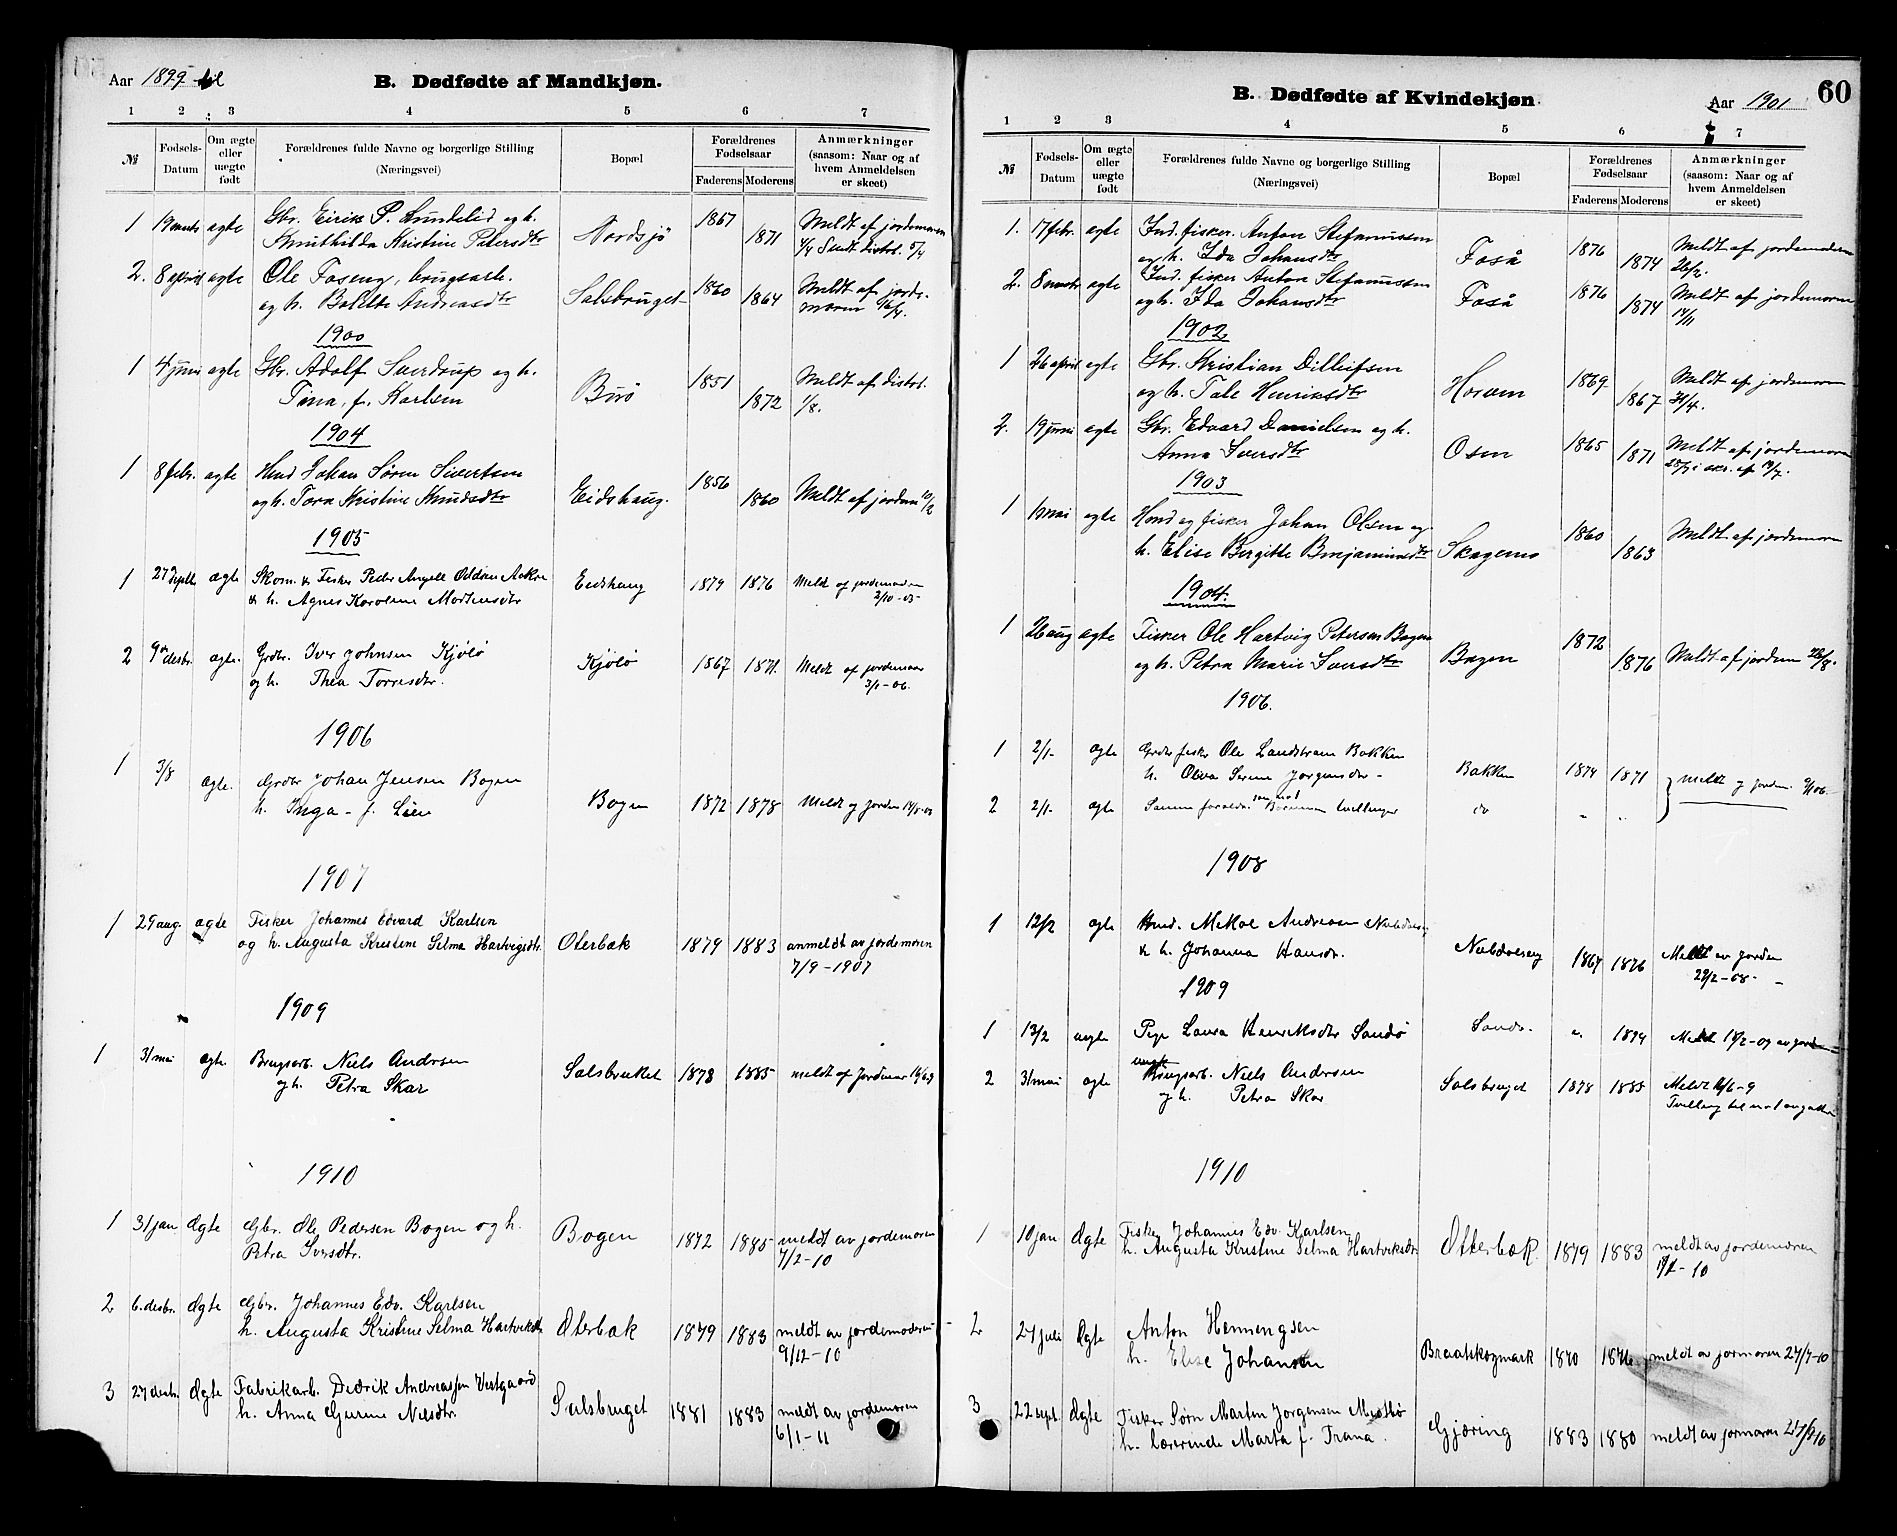 Aar 1899 til
B. Dødfødte af Mandkjøn.
1 2 3 4 5 6 7
№
Fødsels-Datum
Om ægte eller uægte født
Forældrenes fulde Navne og borgerlige Stilling
(Næringsvei)
Bopæl
Forældrenes Fødselsaar
Faderens Moderens
Anmærkninger
(saasom: Naar og af hvem Anmeldelsen er skeet)
1 19 marts ægte Gbr. Eirik P. og h. Nordsjö 1867 Meldt af jordemoren
Knuthilda Kristine Petersdtr 1871
2. 8 april ægte Ole Foseng, brugsarb. Salsbruget 1860 1864 Meldt af jorde-
og h. Andreasdtr moren
1900
1 4 juni ægte Gbr. Adolf Sverdrup og h. Börö 1851 Meldt af distr.
Tina, f. Karlsen 1872 1/8.
1904
1 8 febr. ægte Hmd Johan Søren Sivertsen 1856
og h. Tora Kristine Knudsdtr Eidshaug. 1860 Meldt af jordem 10/2
1905
1 27 septb ægte Skom. & Fisker Peder Angell Oddsen Eidshaug 1879 1876 Meldt af jordemoderen
& h. Agnes Karoline Mortensdtr 2/10-05
2 9de desbr. ægte. Grdbr. Iver Johnsen Kjölö Kjölö 1867 1871. Meldt af jordemoer
og h. Thea Torresdtr. 3/1-06.
1906
1 3/8 ægte. Grdbr Johan Jensen Bogen Bogen 1872 1878 Meldt af jordem
h. Inga - f. Lien
1907
1 29 aug. ægte Fisker Johannes Edvard Karlsen
og h. Augusta Kristine Selma Hartvigsdtr. Oterbæk 1879 1883 anmeldt av jordemoren
7/9-1907
1909
1 31 mai ægte Brugsarb. Niels Andersen Salsbruket 1878 1885 meldt af Jordmor
og h. Petra Skar
1910
1 31 jan ægte Gbr. Ole Pedersen Bogen og h. Bogen 1872 1885 meldt av jordemoren
Petra Iversdtr. 7/2-10
2 6. desbr. ægte Gbr. Johannes Edv. Karlsen
h. Augusta Kristine Selma Hartviksdtr Oterbæk 1879 1883 meldt av jordemoderen
9/12-10
3 27 desbr. ægte Fabrikarb. Didrik Andreassen Vestgaard
h. Anna Gurine Nilsdtr. Salsbruget 1881 1883 meldt av jordemoren
6/1-11
B. Dødfødte af Kvindekjøn.
Aar 1901
60
1 2 3 4 5 6 7
№
Fødsels-Datum
Om ægte eller uægte født
Forældrenes fulde Navne og borgerlige Stilling
(Næringsvei)
Bopæl
Forældrenes Fødselsaar
Faderens Moderens
Anmærkninger
(saasom: Naar og af hvem Anmeldelsen er skeet)
1. 17 febr. ægte Ind. fisker. Anton Stefanussen Foså 1876 1874 Meldt af jordemoderen
og h. Ida Johansdtr 26/2.
2. 8 ægte Ind. fisker Anton Stefanussen Foså 1876 1874 Meldt af jordemoren
og h. Ida Johansdtr 14/11
1902
1 26 april ægte Gbr. Kristian Dillufsen Horsen 1869 Meldt af jordemoren
og h. Tale Henriksdtr 1867
2. 19 juni ægte Gbr. Edvard Danielsen og h. Osen 1865 1871 Meldt af jordemoren
Anna Iversdtr
1903
1 mai ægte Hmd og fisker Johan Olsen og 1860 Meldt af jordemoren
h. Elise Bergitte Benjaminsdtr Skagemo 1863
1904.
1 26 aug ægte Fisker Ole Hartvig Petersen Bogen Bogen 1872
og h. Petra Marie Iversdtr 1876 Meldt af jordem 28/8.
1906.
1 2/1- ægte Grdbr fisker Ole Landstrøm Bakken Bakken 1874 1871 meldt af jordem.
h. Oliva Serine Jørgensdtr -
2 2/1- ægte Samme foreldr. som no 1 tvillinger do " "
1908
1 12/2 ægte Hmd. Mikal Andreasen
& h. Johanna Hansdr. 1867 1876 Meldt av jordem
29/2-08-
1909
1 13/2 uægte Pige Laura Henriksdtr Sandö Sandö. " 1894 Meldt 18/2-09 av jord
2 31 mai ægte Brugsarb. Niels Andersen Salsbruget 1878 1885 Meldt 16/6-9
og h. Petra Skar Tvilling til no 1 av gutter
1910
1 10 jan ægte Fisker Johannes Edv. Karlsen
h. Augusta Kristine Selma Hartviksdtr. Otterbæk. 1879 1883 meldt av jordemoren
2 27 juli ægte Anton Henningsen
h. Elise Johansen Braatskogmark 1870 1876. meldt av jormoren 27/7-10
3 22 sept. ægte Fisker Sørn Martin Jørgensen
h. lærerinde Marta f. Trana. Gjæring 1883 1880 meldt av jormoren 27/9 10